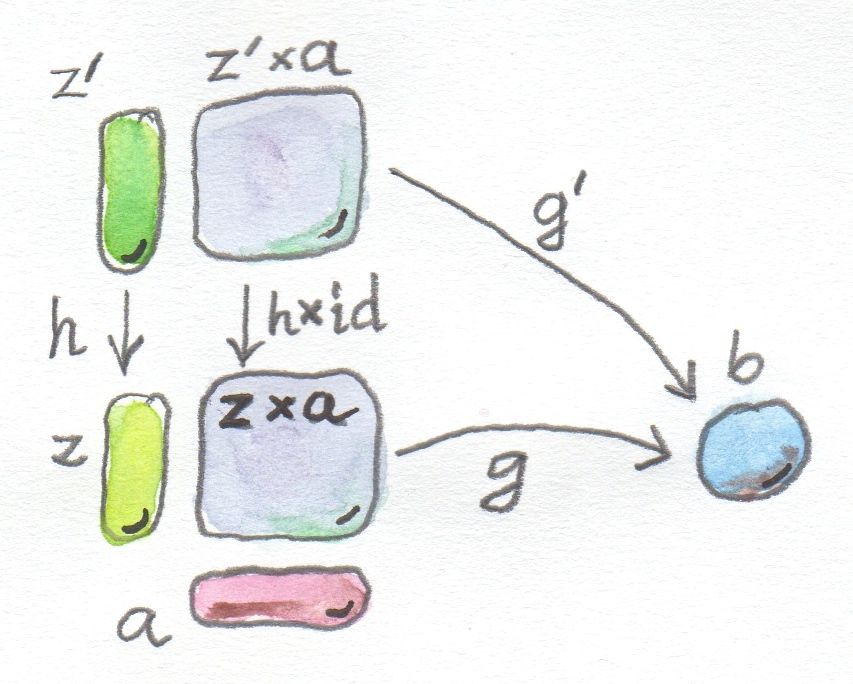 z'
z'×a
g'
h
h×id
b
z
z×a
g
a